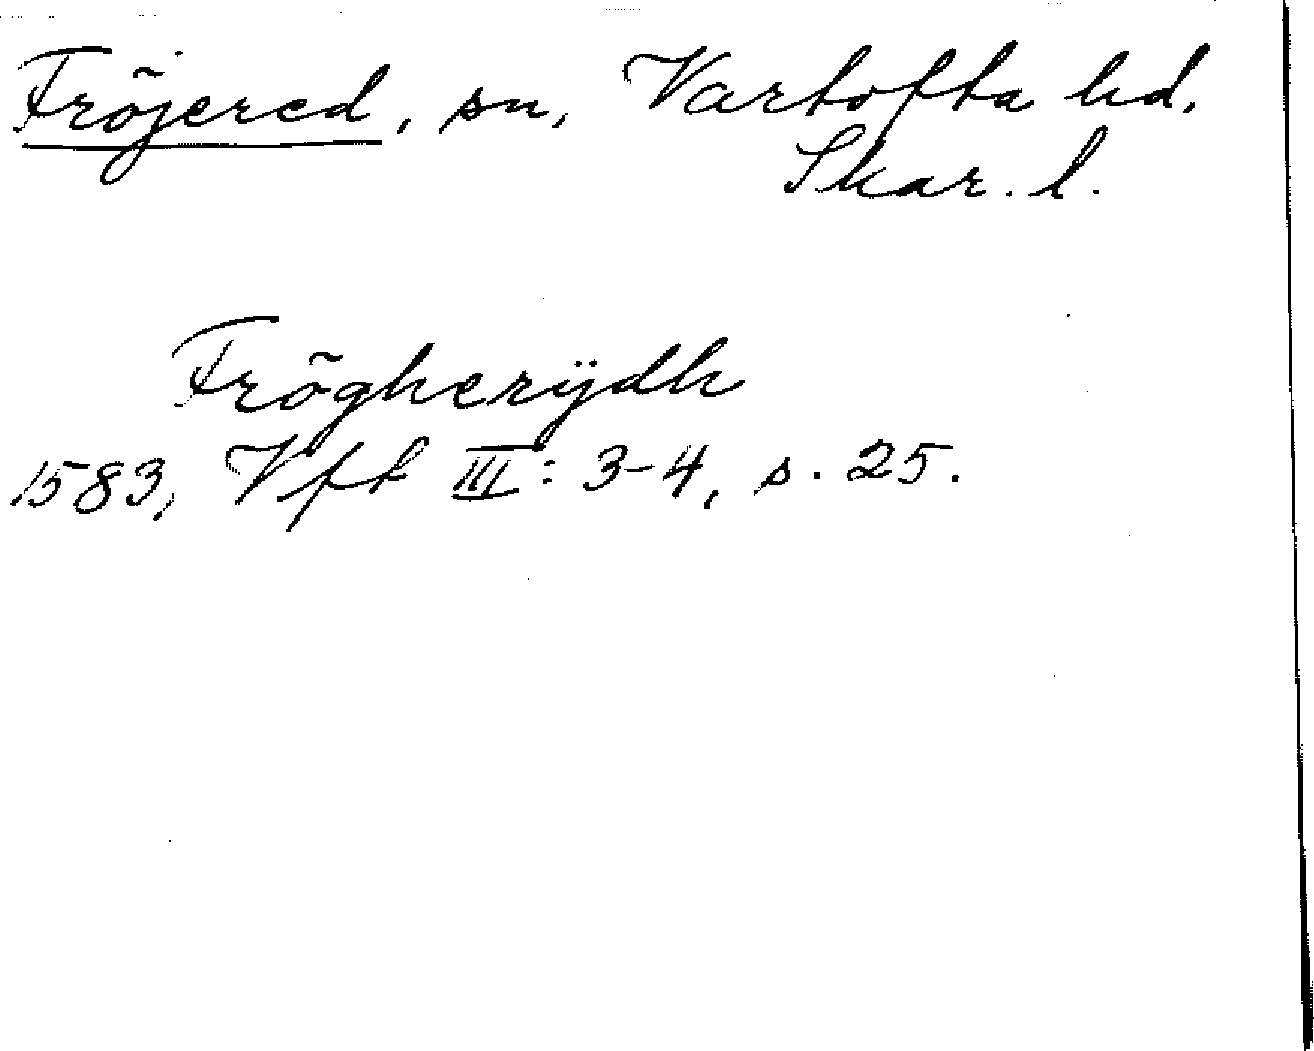 Fröjered, sn, Vartofta hd.
Skar. l.
Frögherÿdh
1583, Vft III: 3-4, s. 25.